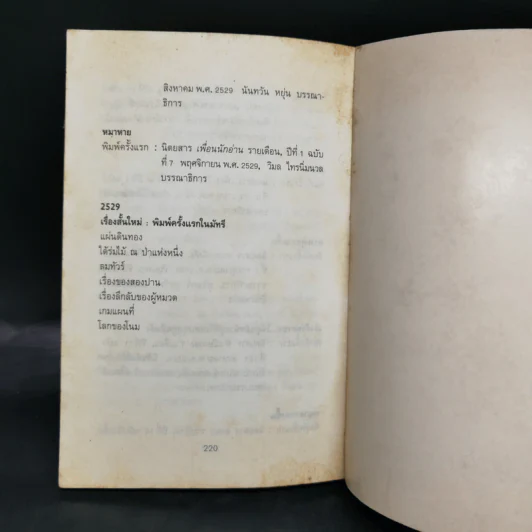 สิงหาคม พ.ศ. 2529 นันทวัน หยุ่น บรรณา-
ธิการ
หมาหาย
พิมพ์ครั้งแรก : นิตยสาร เพื่อนนักอ่าน รายเดือน, ปีที่ 1 ฉบับ
ที่ 7 พฤศจิกายน พ.ศ. 2529, วิมล ไทรนิ่มนวล
บรรณาธิการ
2529
เรื่องสั้นใหม่ : พิมพ์ครั้งแรกในมัทรี
แผ่นดินทอง
ใต้ร่มไม้ ณ ป่าแห่งหนึ่ง
ลมทัวร์
เรื่องของสองปาน
เรื่องลึกลับของผู้หมวด
เกมแผนที่
โลกของโนม
220